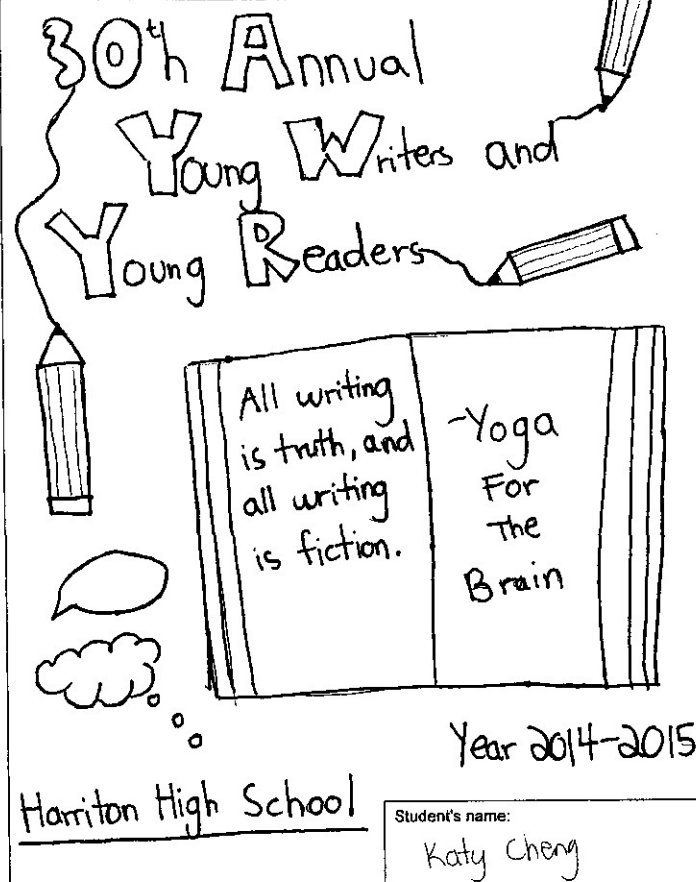 30th Annual
Young Writers and
Young Readers
All writing
is truth, and
all writing
is fiction.
-Yoga
For
The
Brain
Year 2014-2015
Harriton High School
Student's name:
Katy Cheng